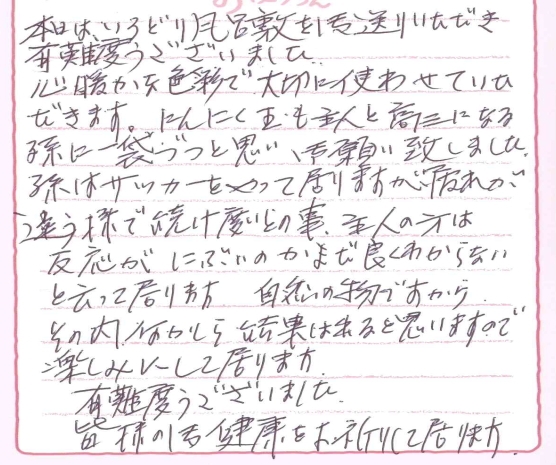 本日は、いろどり風呂敷を御送りいただき
有難度うございました。
心暖かな色彩で大切に使わせていた
だきます。にんにく玉も主人と高三になる
孫に一袋づつと思い、御願い致しました。
孫はサッカーをやって居りますが、疲れが
違う様で続け度いとの事、主人の方は
反応がにぶいのかまだ良くわからない
と云って居ります 自然の物ですから、
その内何かしら結果は出ると思いますので
楽しみにして居ります。
有難度うございました。
皆様の御健康をお祈りして居ります。